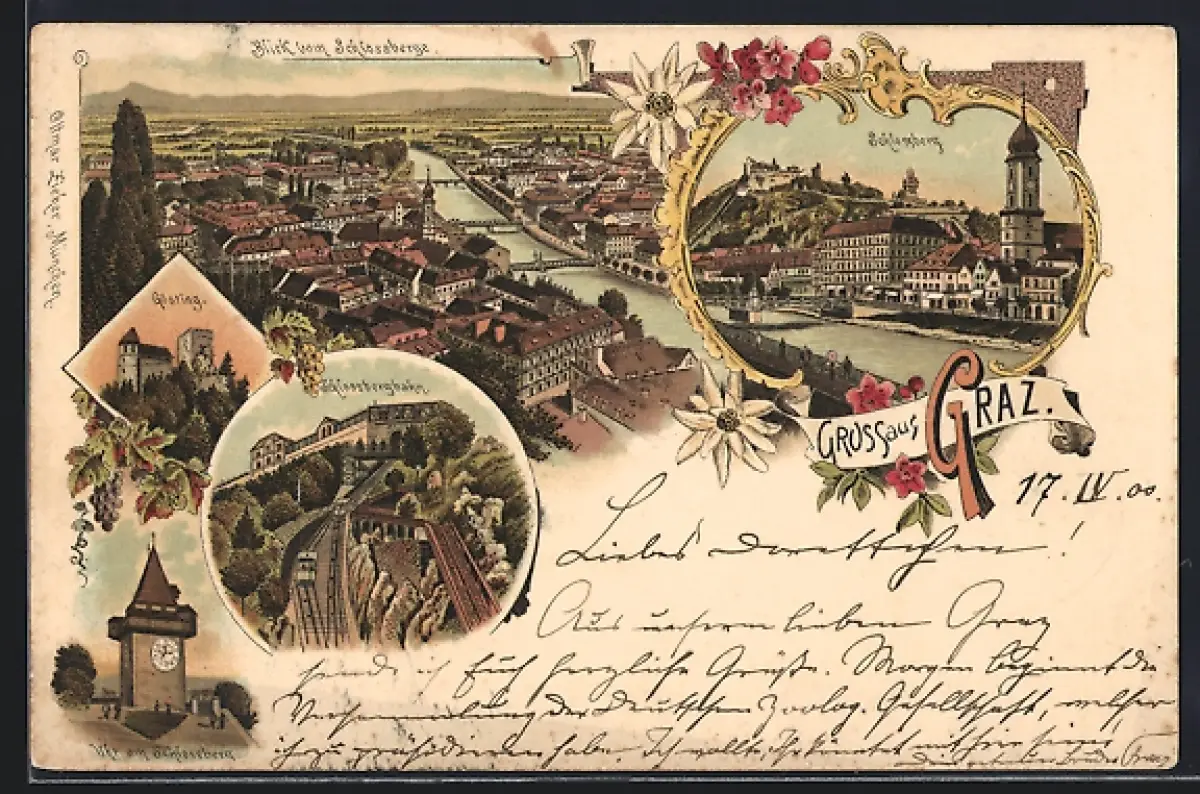 Blick vom Schlossberge.
Ottmar Zieher, München.
Schlossberg
Gösting.
Schlossbergbahn.
GRUSS aus GRAZ.
17. IV. 00.
Liebes Dorettchen!
Aus unserm lieben Graz
sende ich Euch herzliche Grüße. Morgen beginnt die
Versammlung der Deutschen Zoolog. Gesellschaft, welcher
ich zu präsidieren habe. Ich wollte, Ihr könntet mit hier sein.
Dein Bruder
Uhr am Schlossberg.